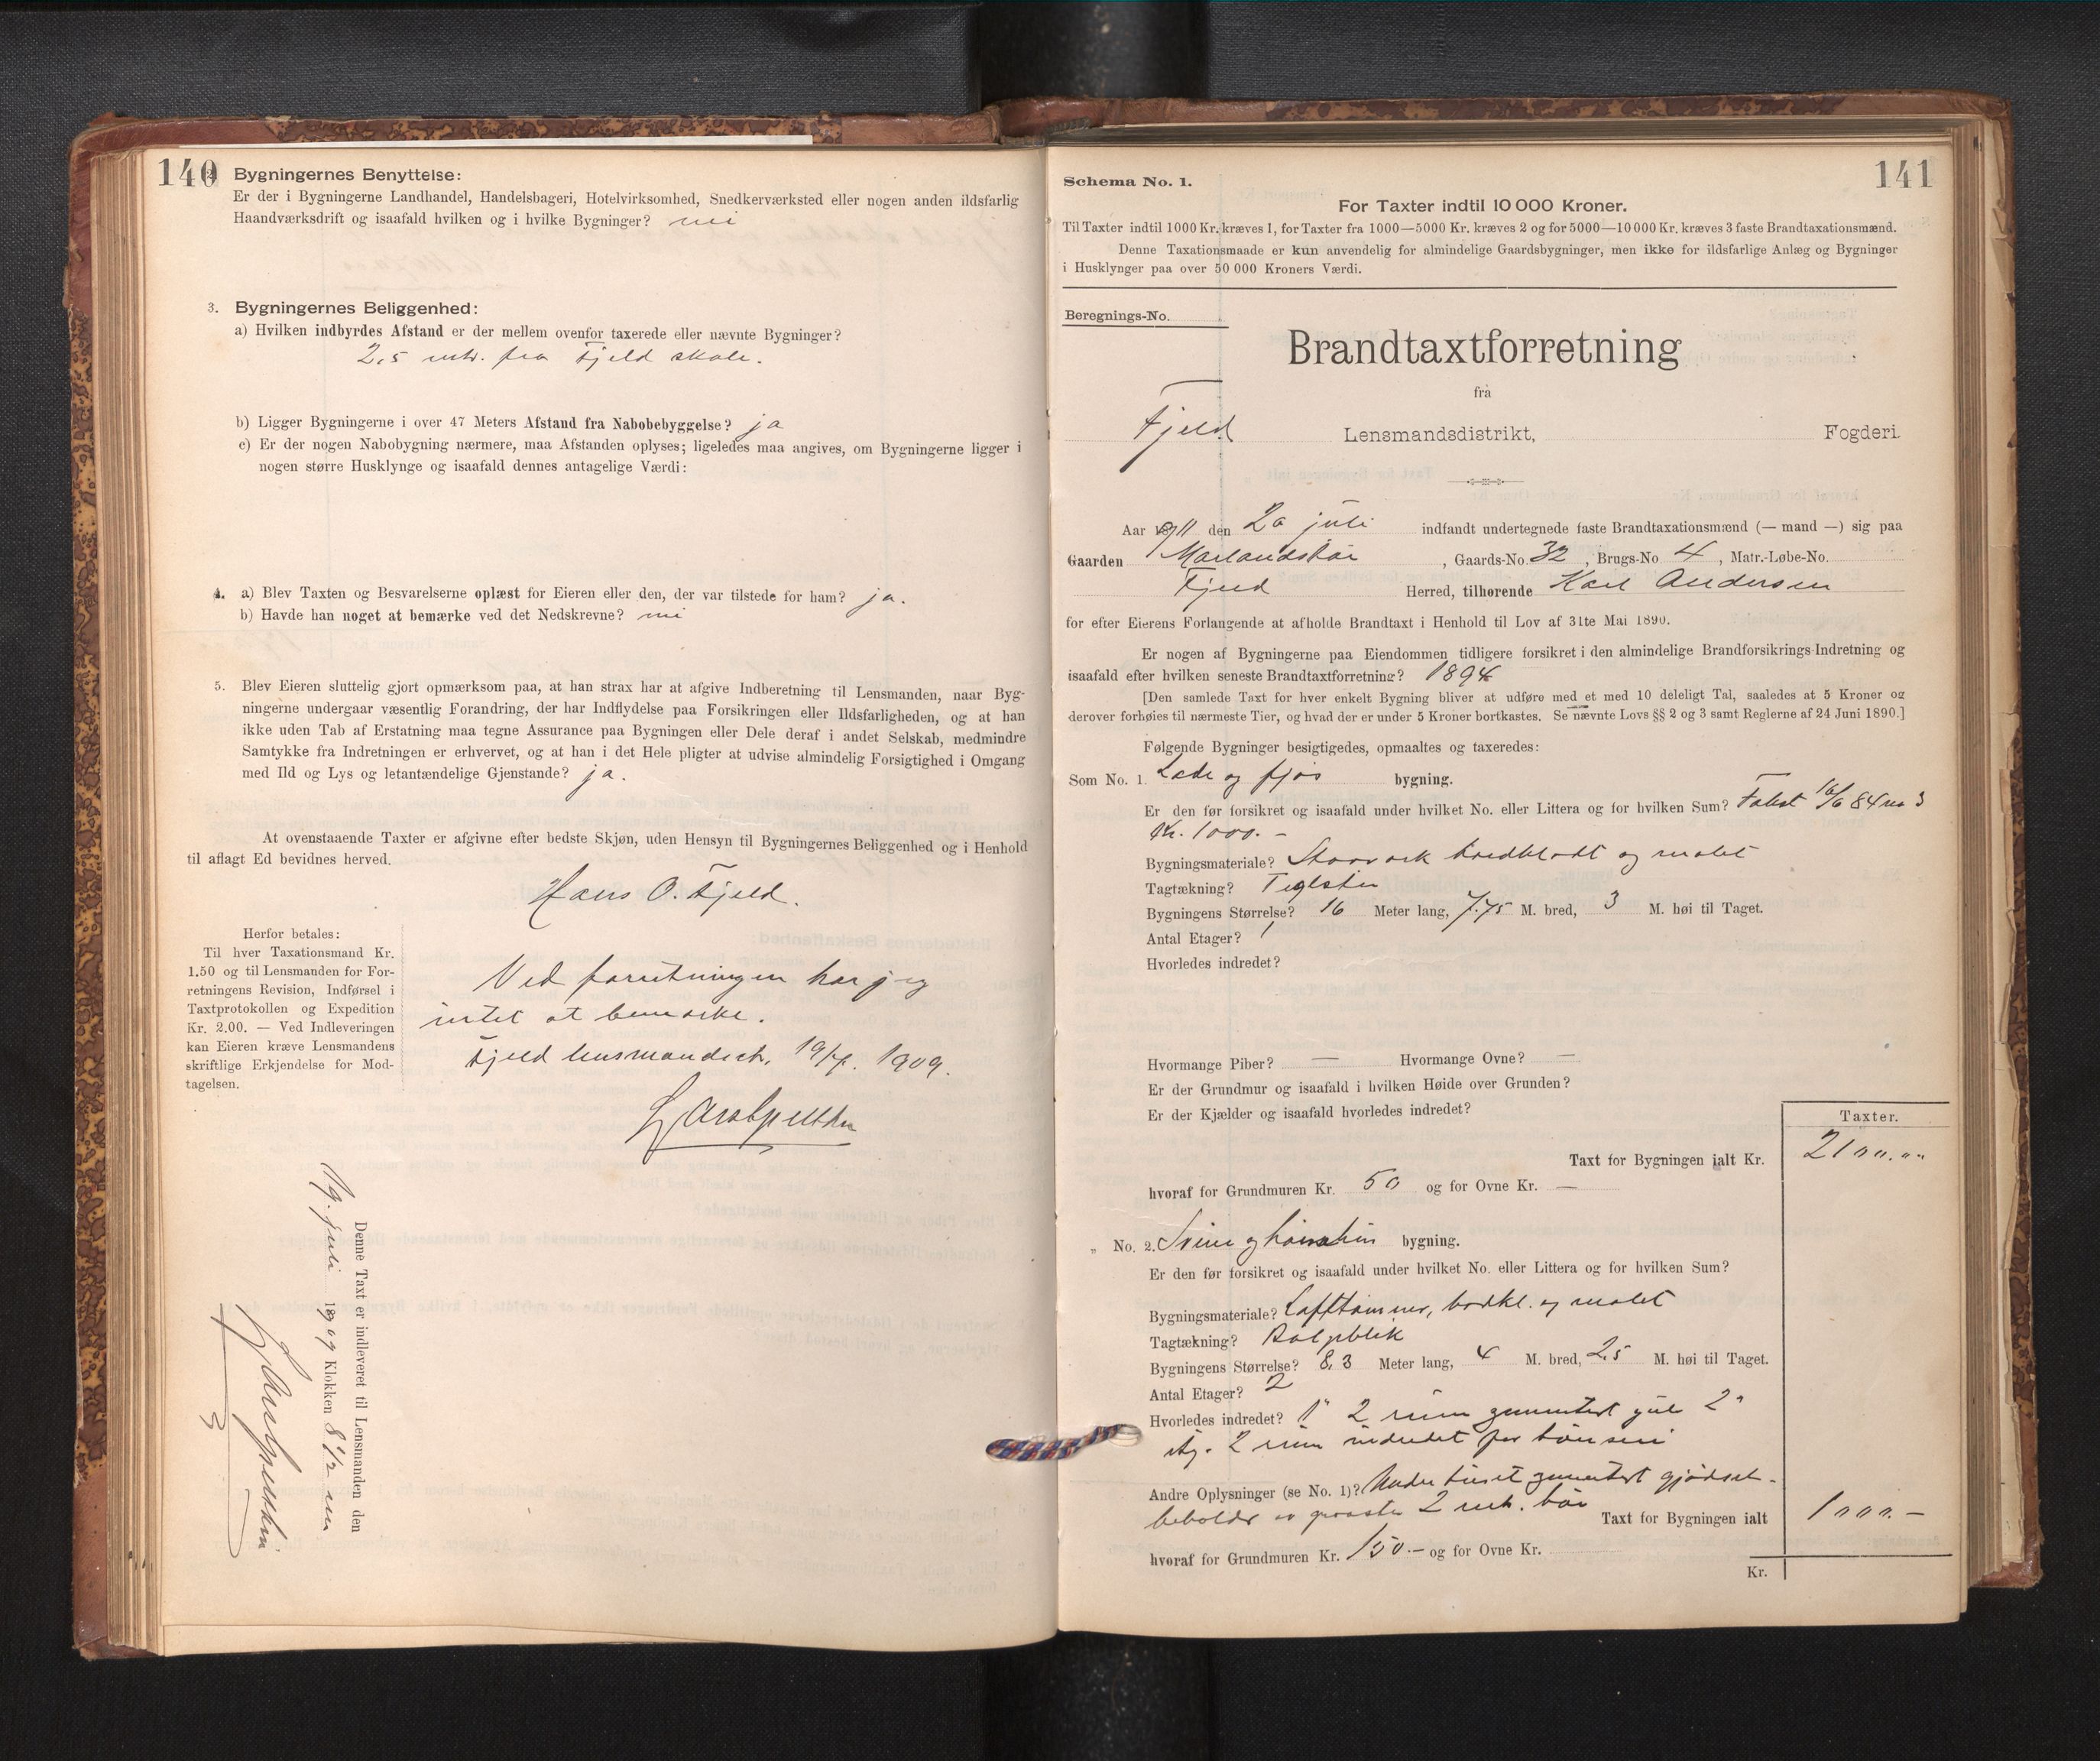 140
2. Bygningernes Benyttelse:
Er der i Bygningerne Landhandel, Handelsbageri, Hotelvirksomhed, Snedkerværksted eller nogen anden ildsfarlig
Haandværksdrift og isaafald hvilken og i hvilke Bygninger? nei
3. Bygningernes Beliggenhed:
a) Hvilken indbyrdes Afstand er der mellem ovenfor taxerede eller nævnte Bygninger?
2,5 mtr. fra Fjeld skole.
b) Ligger Bygningerne i over 47 Meters Afstand fra Nabobebyggelse? ja
c) Er der nogen Nabobygning nærmere, maa Afstanden oplyses; ligeledes maa angives, om Bygningerne ligger i
nogen større Husklynge og isaafald dennes antagelige Værdi:
4. a) Blev Taxten og Besvarelserne oplæst for Eieren eller den, der var tilstede for ham? ja.
b) Havde han noget at bemærke ved det Nedskrevne? nei
5. Blev Eieren sluttelig gjort opmærksom paa, at han strax har at afgive Indberetning til Lensmanden, naar Byg-
ningerne undergaar væsentlig Forandring, der har Indflydelse paa Forsikringen eller Ildsfarligheden, og at han
ikke uden Tab af Erstatning maa tegne Assurance paa Bygningen eller Dele deraf i andet Selskab, medmindre
Samtykke fra Indretningen er erhvervet, og at han i det Hele pligter at udvise almindelig Forsigtighed i Omgang
med Ild og Lys og letantændelige Gjenstande? ja.
At ovenstaaende Taxter er afgivne efter bedste Skjøn, uden Hensyn til Bygningernes Beliggenhed og i Henhold
til aflagt Ed bevidnes herved.
Hans O. Fjeld.
Herfor betales:
Til hver Taxationsmand Kr.
1.50 og til Lensmanden for For-
retningens Revision, Indførsel i
Taxtprotokollen og Expedition
Kr. 2.00. — Ved Indleveringen
kan Eieren kræve Lensmandens
skriftlige Erkjendelse for Mod-
tagelsen.
Ved forretningen har jeg
intet at bemerke.
Fjeld lensmandsct. 19/7. 1909.
Denne Taxt er indleveret til Lensmanden den
19. juli 1909 Klokken 8 1/2 em
141
Schema No. 1.
For Taxter indtil 10 000 Kroner.
Til Taxter indtil 1000 Kr. kræves 1, for Taxter fra 1000—5000 Kr. kræves 2 og for 5000—10 000 Kr. kræves 3 faste Brandtaxationsmænd.
Denne Taxationsmaade er kun anvendelig for almindelige Gaardsbygninger, men ikke for ildsfarlige Anlæg og Bygninger
i Husklynger paa over 50 000 Kroners Værdi.
Beregnings-No.
Brandtaxtforretning
fra
Fjeld Lensmandsdistrikt, Fogderi.
Aar 1911 den 20 juli indfandt undertegnede faste Brandtaxationsmænd (— mand —) sig paa
Gaarden , Gaards-No. 32, Brugs-No 4, Matr.-Løbe-No.
Fjeld Herred, tilhørende Karl Andersen
for efter Eierens Forlangende at afholde Brandtaxt i Henhold til Lov af 31te Mai 1890.
Er nogen af Bygningerne paa Eiendommen tidligere forsikret i den almindelige Brandforsikrings-Indretning og
isaafald efter hvilken seneste Brandtaxtforretning? 1894
[Den samlede Taxt for hver enkelt Bygning bliver at udføre med et med 10 deleligt Tal, saaledes at 5 Kroner og
derover forhøies til nærmeste Tier, og hvad der er under 5 Kroner bortkastes. Se nævnte Lovs §§ 2 og 3 samt Reglerne af 24 Juni 1890.]
Følgende Bygninger besigtigedes, opmaaltes og taxeredes:
Som No. 1. Lade og fjøs bygning.
Er den før forsikret og isaafald under hvilket No. eller Littera og for hvilken Sum? 84 no 3
Kr. 1000.-
Bygningsmateriale? Stavverk bordklædt og malet
Tagtækning? Teglsten
Bygningens Størrelse? 16 Meter lang, 7.75 M. bred, 3 M. høi til Taget.
Antal Etager? 1
Hvorledes indredet?
Hvormange Piber? — Hvormange Ovne? —
Er der Grundmur og isaafald i hvilken Høide over Grunden?
Er der Kjælder og isaafald hvorledes indredet?
Taxter.
Taxt for Bygningen ialt Kr. 2100.00
hvoraf for Grundmuren Kr. 50 og for Ovne Kr. —
„ No. 2. Svine og hønsehus bygning.
Er den før forsikret og isaafald under hvilket No. eller Littera og for hvilken Sum?
Bygningsmateriale? Lafttømmer, bordkl. og malet
Tagtækning? Bølgeblik
Bygningens Størrelse? 8,3 Meter lang, 4 M. bred, 2,5 M. høi til Taget.
Antal Etager? 2
Hvorledes indredet? 1" 2 rum gulv 2"
etg. 2 rum indredet for
Andre Oplysninger (se No. 1)? Under huset gjødsel-
2 mtr. Taxt for Bygningen ialt 1000.-
hvoraf for Grundmuren Kr. 150.- og for Ovne Kr.
Kr.